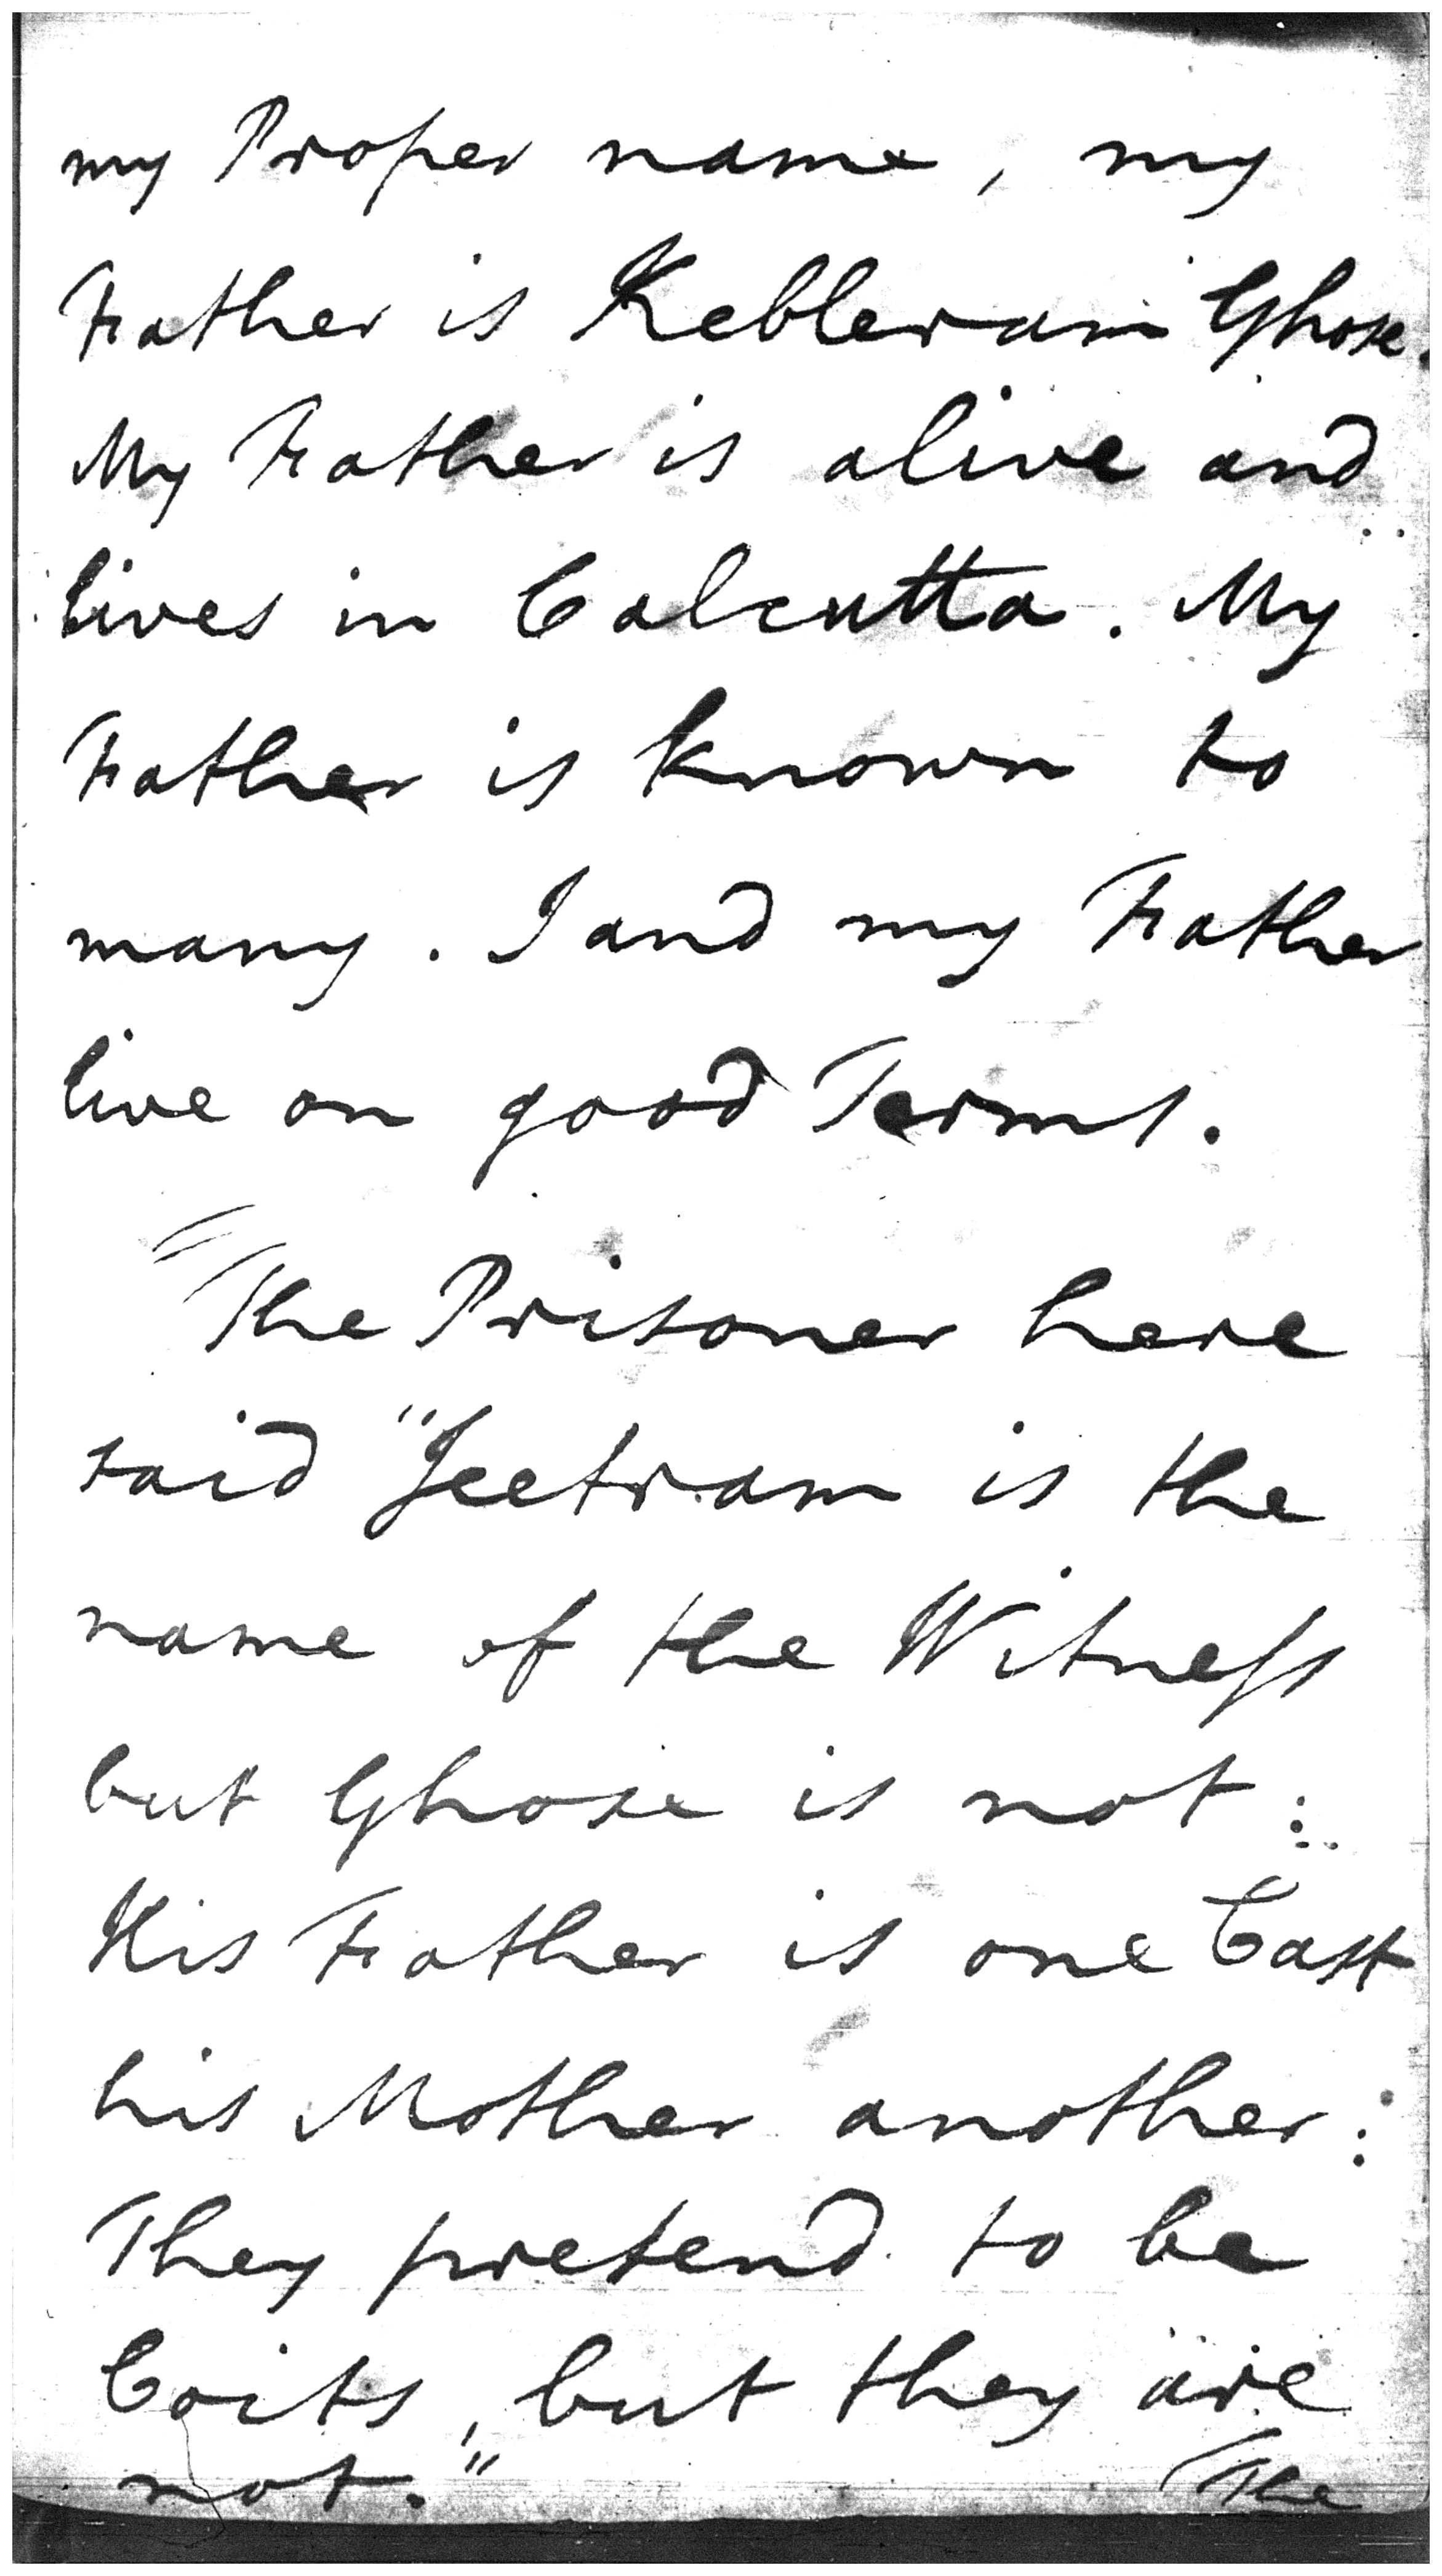 my Proper name, my
Father is Kebleram Ghose.
My Father is alive and
lives in Calcutta. My
Father is known to
many. I and my Father
live on good Terms.
"The Prisoner here
said "Jeetram is the
name of the Witness
but Ghose is not:
His Father is one Cast
his Mother another:
They pretend to be
Coits, but they are
not." The